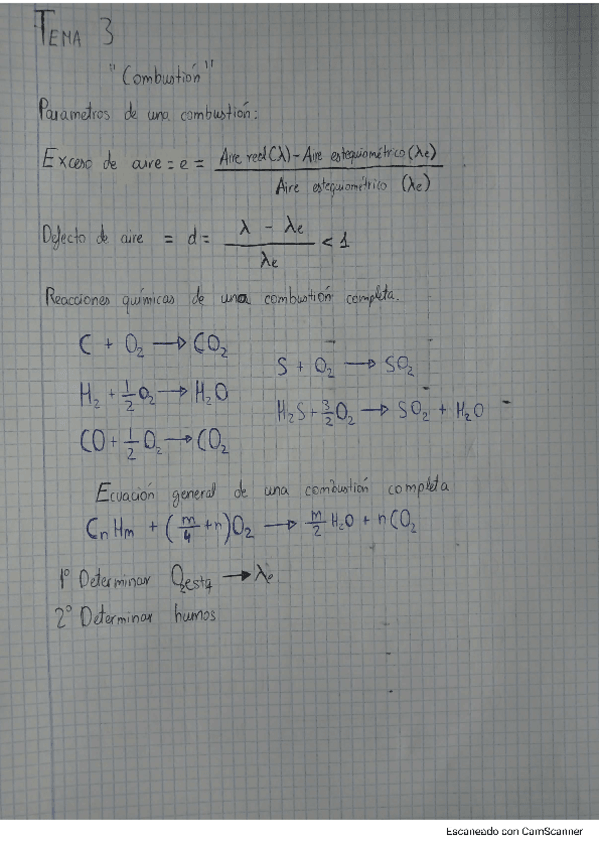 TEMA 3
"Combustión"
Parametros de una combustión:
Exceso de aire = e = Aire real(λ) - Aire estequiométrico (λe) / Aire estequiométrico (λe)
Defecto de aire = d = λ - λe / λe < 1
Reacciones químicas de una combustión completa.
C + O₂ → CO₂
S + O₂ → SO₂
H₂ + 1/2 O₂ → H₂O
H₂S + 3/2 O₂ → SO₂ + H₂O
CO + 1/2 O₂ → CO₂
Ecuación general de una combustión completa
CnHm + (m/4 + n)O₂ → m/2 H₂O + nCO₂
1º Determinar O₂estq → λe
2º Determinar humos
Escaneado con CamScanner